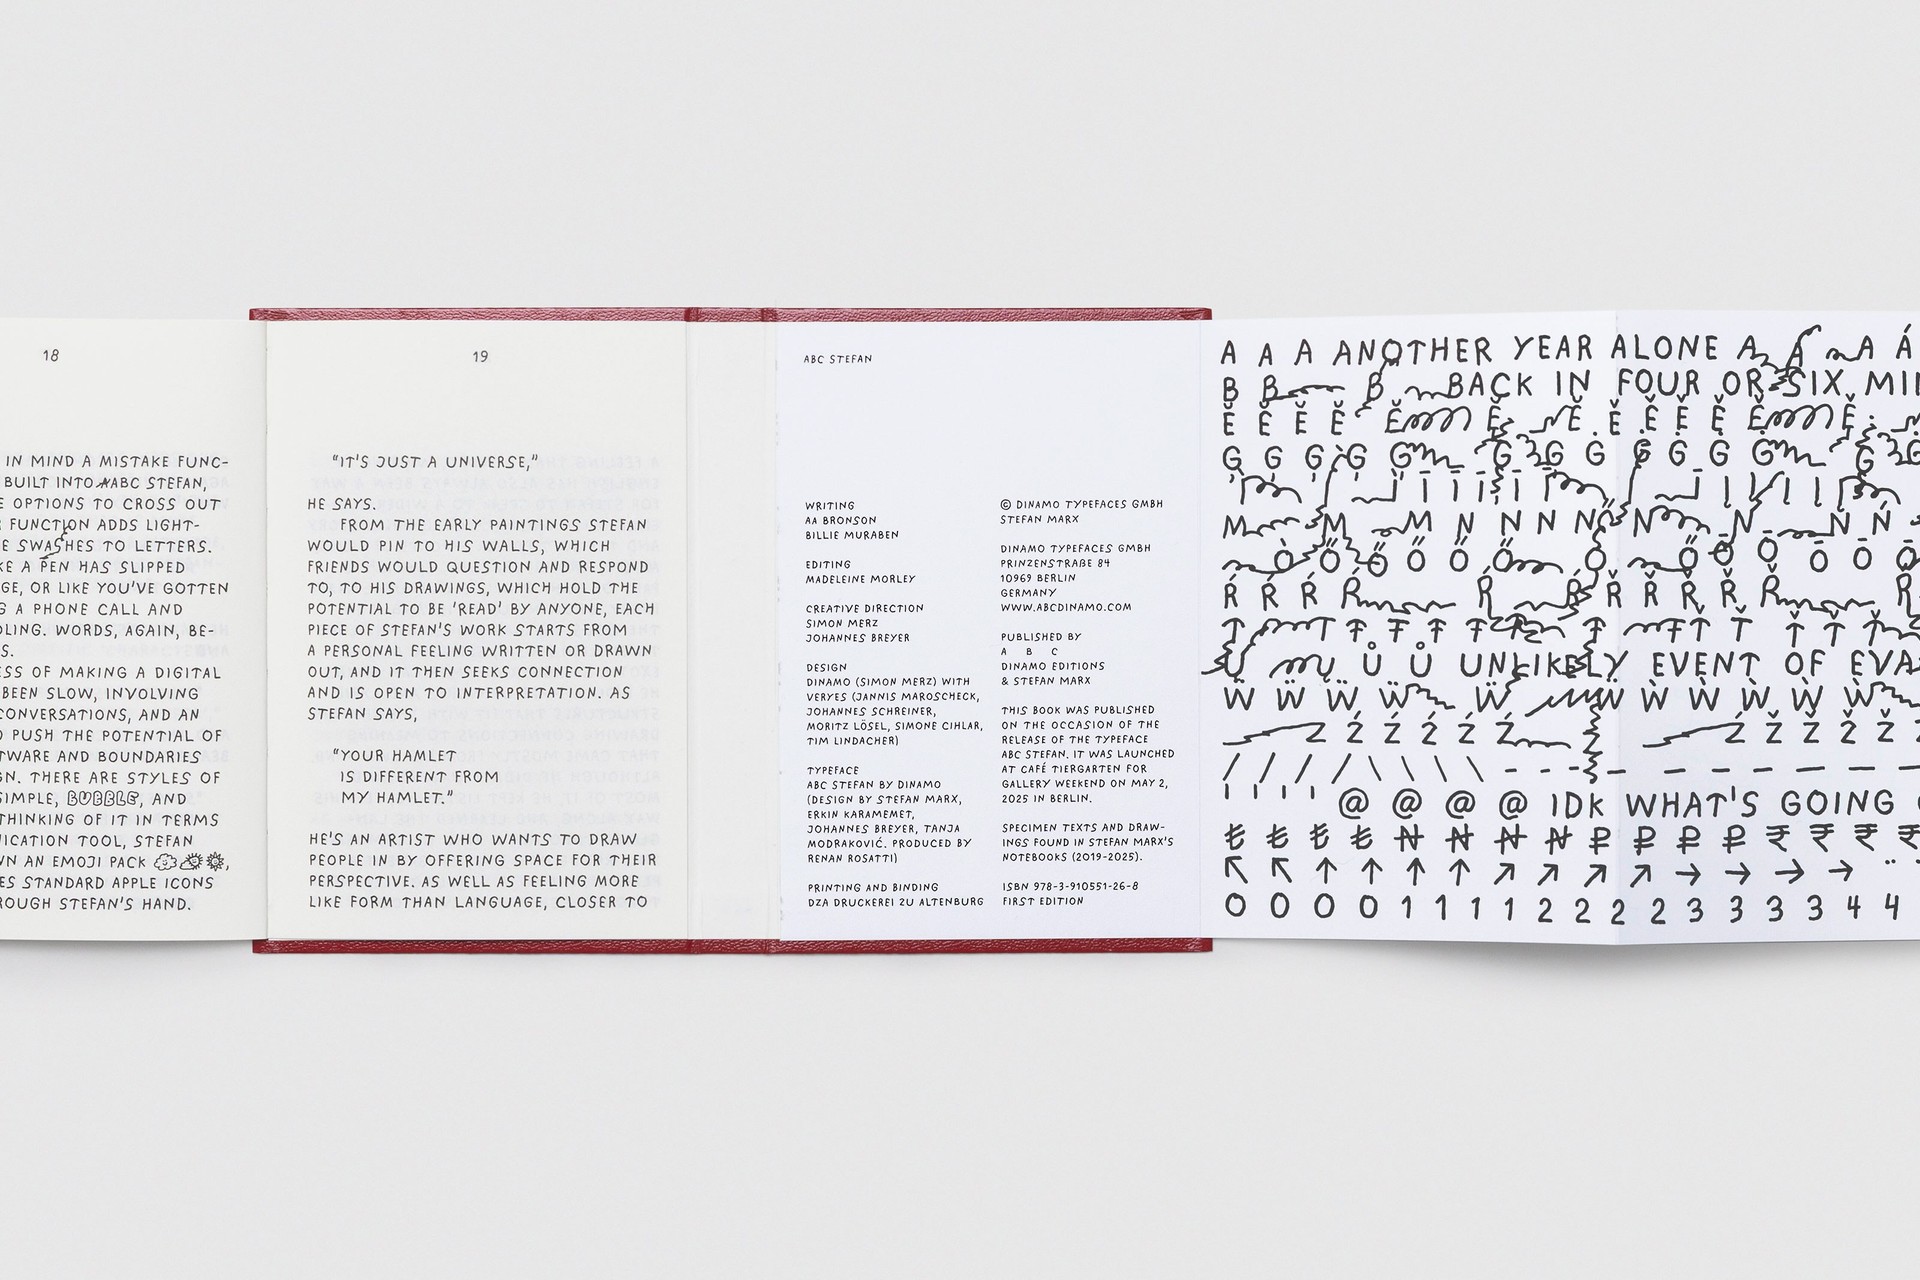 18
IN MIND A MISTAKE FUNC-
BUILT INTO ABC STEFAN,
OPTIONS TO CROSS OUT
FUNCTION ADDS LIGHT-
SWASHES TO LETTERS.
A PEN HAS SLIPPED
OR LIKE YOU'VE GOTTEN
A PHONE CALL AND
WORDS, AGAIN, BE-
OF MAKING A DIGITAL
BEEN SLOW, INVOLVING
CONVERSATIONS, AND AN
PUSH THE POTENTIAL OF
AND BOUNDARIES
THERE ARE STYLES OF
SIMPLE, BUBBLE, AND
THINKING OF IT IN TERMS
TOOL, STEFAN
AN EMOJI PACK
STANDARD APPLE ICONS
STEFAN'S HAND.
19
"IT'S JUST A UNIVERSE,"
HE SAYS.
FROM THE EARLY PAINTINGS STEFAN
WOULD PIN TO HIS WALLS, WHICH
FRIENDS WOULD QUESTION AND RESPOND
TO, TO HIS DRAWINGS, WHICH HOLD THE
POTENTIAL TO BE 'READ' BY ANYONE, EACH
PIECE OF STEFAN'S WORK STARTS FROM
A PERSONAL FEELING WRITTEN OR DRAWN
OUT, AND IT THEN SEEKS CONNECTION
AND IS OPEN TO INTERPRETATION. AS
STEFAN SAYS,
"YOUR HAMLET
IS DIFFERENT FROM
MY HAMLET."
HE'S AN ARTIST WHO WANTS TO DRAW
PEOPLE IN BY OFFERING SPACE FOR THEIR
PERSPECTIVE. AS WELL AS FEELING MORE
LIKE FORM THAN LANGUAGE, CLOSER TO
ABC STEFAN
WRITING
AA BRONSON
BILLIE MURABEN
EDITING
MADELEINE MORLEY
CREATIVE DIRECTION
SIMON MERZ
JOHANNES BREYER
DESIGN
DINAMO (SIMON MERZ) WITH
VERYES (JANNIS MAROSCHECK,
JOHANNES SCHREINER,
MORITZ LÖSEL, SIMONE CIHLAR,
TIM LINDACHER)
TYPEFACE
ABC STEFAN BY DINAMO
(DESIGN BY STEFAN MARX,
ERKIN KARAMEMET,
JOHANNES BREYER, TANJA
MODRAKOVIĆ. PRODUCED BY
RENAN ROSATTI)
PRINTING AND BINDING
DZA DRUCKEREI ZU ALTENBURG
© DINAMO TYPEFACES GMBH
STEFAN MARX
DINAMO TYPEFACES GMBH
PRINZENSTRAßE 84
10969 BERLIN
GERMANY
WWW.ABCDINAMO.COM
PUBLISHED BY
A B C
DINAMO EDITIONS
& STEFAN MARX
THIS BOOK WAS PUBLISHED
ON THE OCCASION OF THE
RELEASE OF THE TYPEFACE
ABC STEFAN. IT WAS LAUNCHED
AT CAFÉ TIERGARTEN FOR
GALLERY WEEKEND ON MAY 2,
2025 IN BERLIN.
SPECIMEN TEXTS AND DRAW-
INGS FOUND IN STEFAN MARX'S
NOTEBOOKS (2019-2025).
ISBN 978-3-910551-26-8
FIRST EDITION
A A A ANOTHER YEAR ALONE A A A Á
B B B BACK IN FOUR OR SIX
Ě Ě Ě Ě Ě Ě Ě Ė Ė Ė Ė Ė Ė
G G G G G G G G G G G G G
M M M N N N N N N Ń Ń
Ö Ő Ő Ő Ő Ő Ō Ō Ō Ō Ō Ō
Ŕ Ŕ Ŕ Ŕ Ŕ Ř Ř Ř Ř Ř Ř
T T Ŧ Ŧ Ŧ Ŧ Ŧ Ŧ Ŧ Ť Ť Ť Ť
U U Ů Ů UNLIKELY EVENT OF
Ẅ Ẅ Ẅ Ẅ Ẅ Ẁ Ẁ Ẁ Ẁ Ẁ Ẁ
Ź Ź Ź Ź Ź Ž Ž Ž Ž Ž
/ / / / \ \ \ \ - - - - – – – –
' ' ' ' @ @ @ @ IDK WHAT'S GOING
₺ ₺ ₺ ₺ ₦ ₦ ₦ ₦ ₽ ₽ ₽ ₽ ₹ ₹ ₹ ₹
↖ ↖ ↑ ↑ ↑ ↑ ↗ ↗ ↗ ↗ → → → →
0 0 0 0 1 1 1 1 2 2 2 2 3 3 3 3 4 4